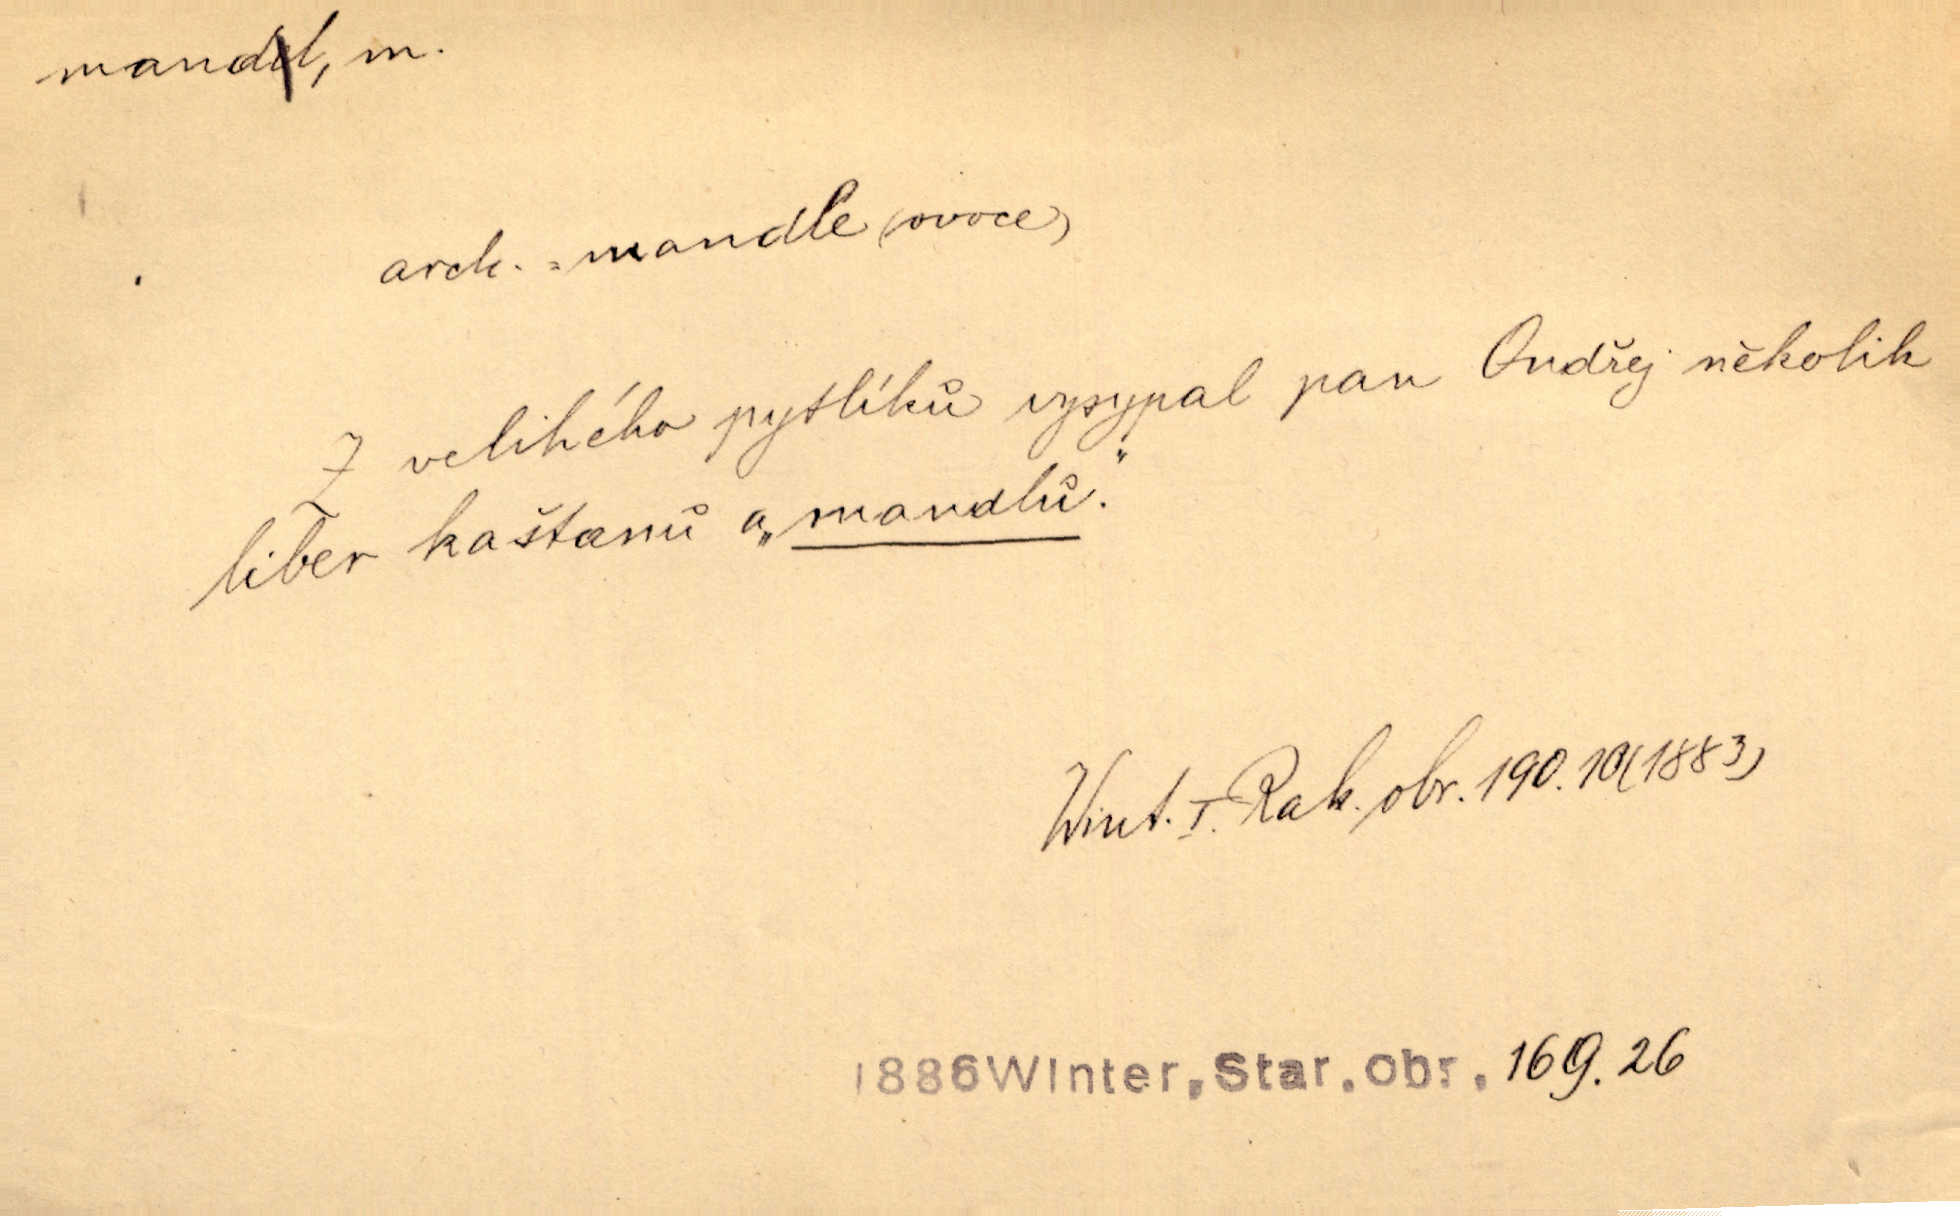 mandl, m.
arch. = mandle (ovoce)
Z velikého pytlíků vysypal pan Ondřej několik
liber kaštanů a „mandlů."
Wint. I. Rak. obr. 190. 10 (1883)
1886 Winter, Star. obr. 169. 26